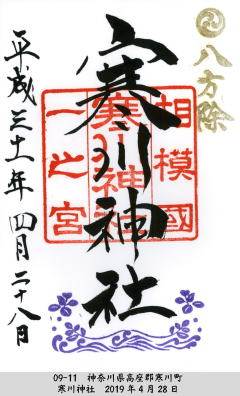 八方除
相模國
一之宮
寒川神社
寒川神社
平成三十一年四月二十八日
09-11　神奈川県高座郡寒川町
寒川神社　2019年4月28日